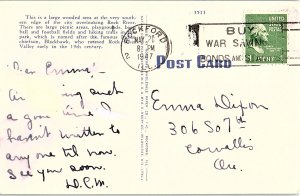 This is a large wooded area at the very south-
ern edge of the city overlooking Rock River.
There are large picnic areas, playgrounds,
ball and football fields and hiking trails in
park, which is named after the famous
chieftain, Blackhawk, who retired Rock
Valley early in the 19th century.
ROCKFORD
8 PM
1947
BUY
WAR SAVINGS
BONDS AND
UNITED STATES POSTAGE
1¢
POST CARD
Dear Emma:-
Am having such
a good time I
haven't written to
any one til now.
See you soon.
D.C.M.
Emma Dixon
306 So 7th
Corvallis
Ore.